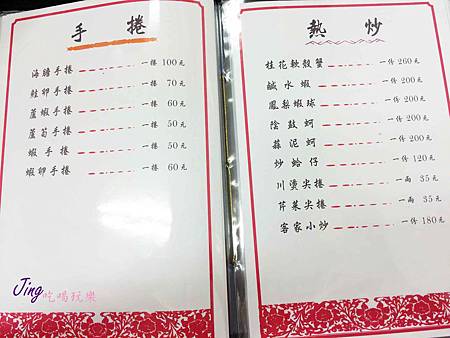 手捲
海膽手捲 一捲 100元
鮭卵手捲 一捲 70元
蘆蝦手捲 一捲 60元
蘆筍手捲 一捲 50元
蝦手捲 一捲 50元
蝦卵手捲 一捲 60元
Jing吃喝玩樂
熱炒
桂花軟殼蟹 一份260元
鹹水蝦 一份200元
鳳梨蝦球 一份200元
陰鼓蚵 一份200元
蒜泥蚵 一份200元
炒蛤仔 一份120元
川燙尖捲 一兩 35元
芹菜尖捲 一兩 35元
客家小炒 一份180元